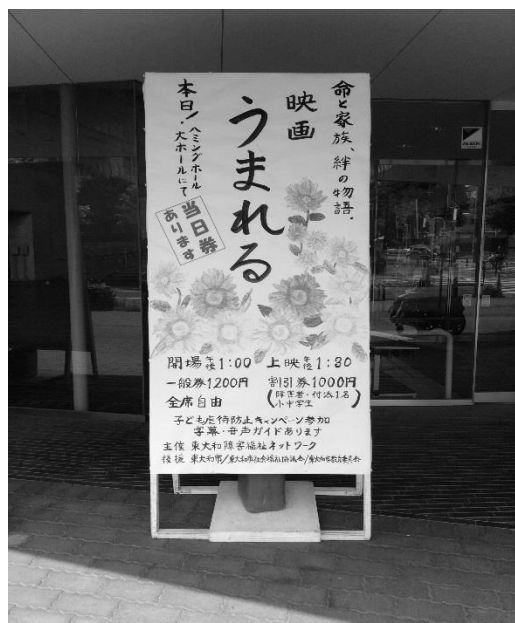 命と家族、絆の物語.
映画
うまれる
本日/ハミングホール
・大ホールにて
当日券
あります
開場 午後1:00 上映 午後1:30
一般券1200円 割引券1000円
全席自由 (障害者・付添1名
小中学生)
子ども虐待防止キャンペーン参加
字幕・音声ガイドあります
主催 東大和障害福祉ネットワーク
後援 東大和市/東大和市社会福祉協議会/東大和市教育委員会